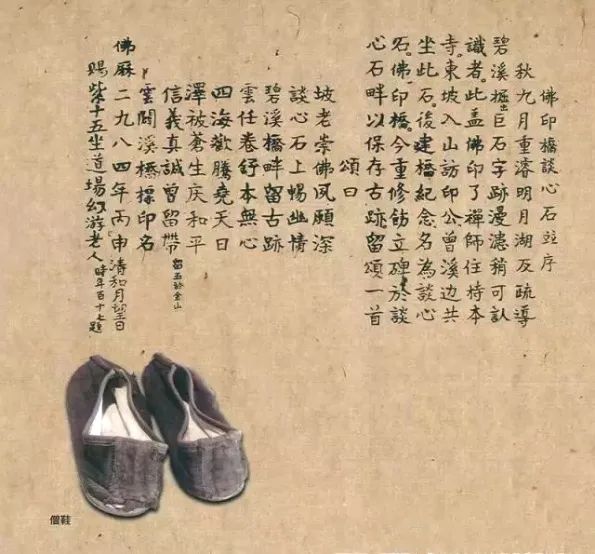 佛印橋談心石並序
秋九月重濬明月湖及疏導
碧溪掘出巨石字跡漫漶稍可認
識者。此盖佛印了禪師住持本
寺。東坡入山訪印公曾溪边共
坐此石。後建橋紀念名為談心
石。佛印橋。今重修飭立碑於談
心石畔以保存古跡留頌一首
頌曰
坡老崇佛夙願深
談心石上暢幽情
碧溪橋畔留古跡
雲任卷舒本無心
四海歡騰堯天日
澤被蒼生庆和平
信義真誠曾留帶 留玉於金山
雲關溪橋印名
佛厤二九八四年丙申清和月望日
賜紫十五坐道場幻游老人 時年百十七題
僧鞋